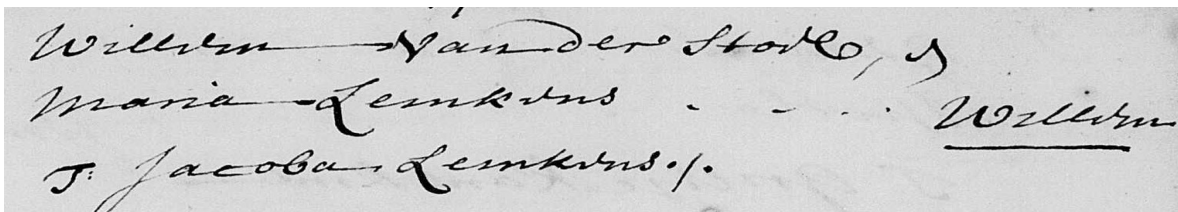 Willem Van der Stoel, &
Maria Lemkens - - . . Willem
T: Jacoba Lemkens./.